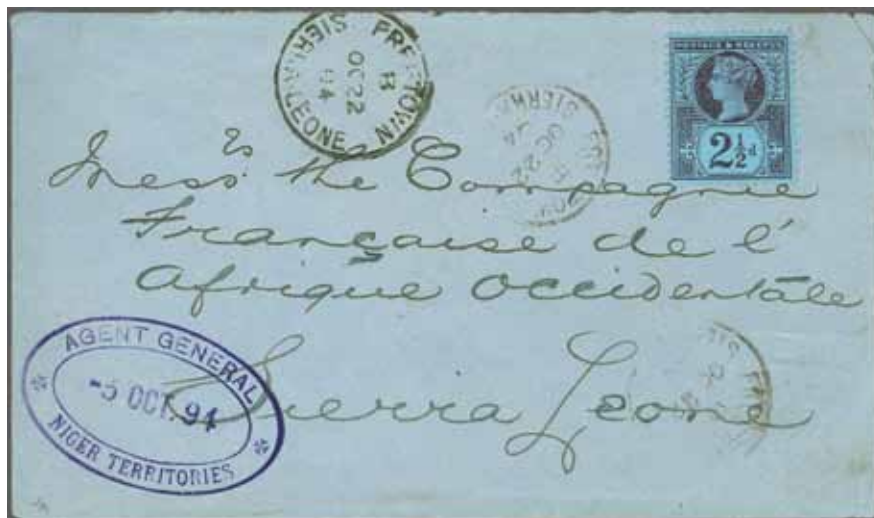 FREETOWN
SIERRA LEONE
B
OC 22
94
SIERRA
OC 22
94
POSTAGE & REVENUE
2½d
Messrs the Compagnie
Française de l'
Afrique Occidentale
Sierra Leone
AGENT GENERAL
-5 OCT. 94
NIGER TERRITORIES